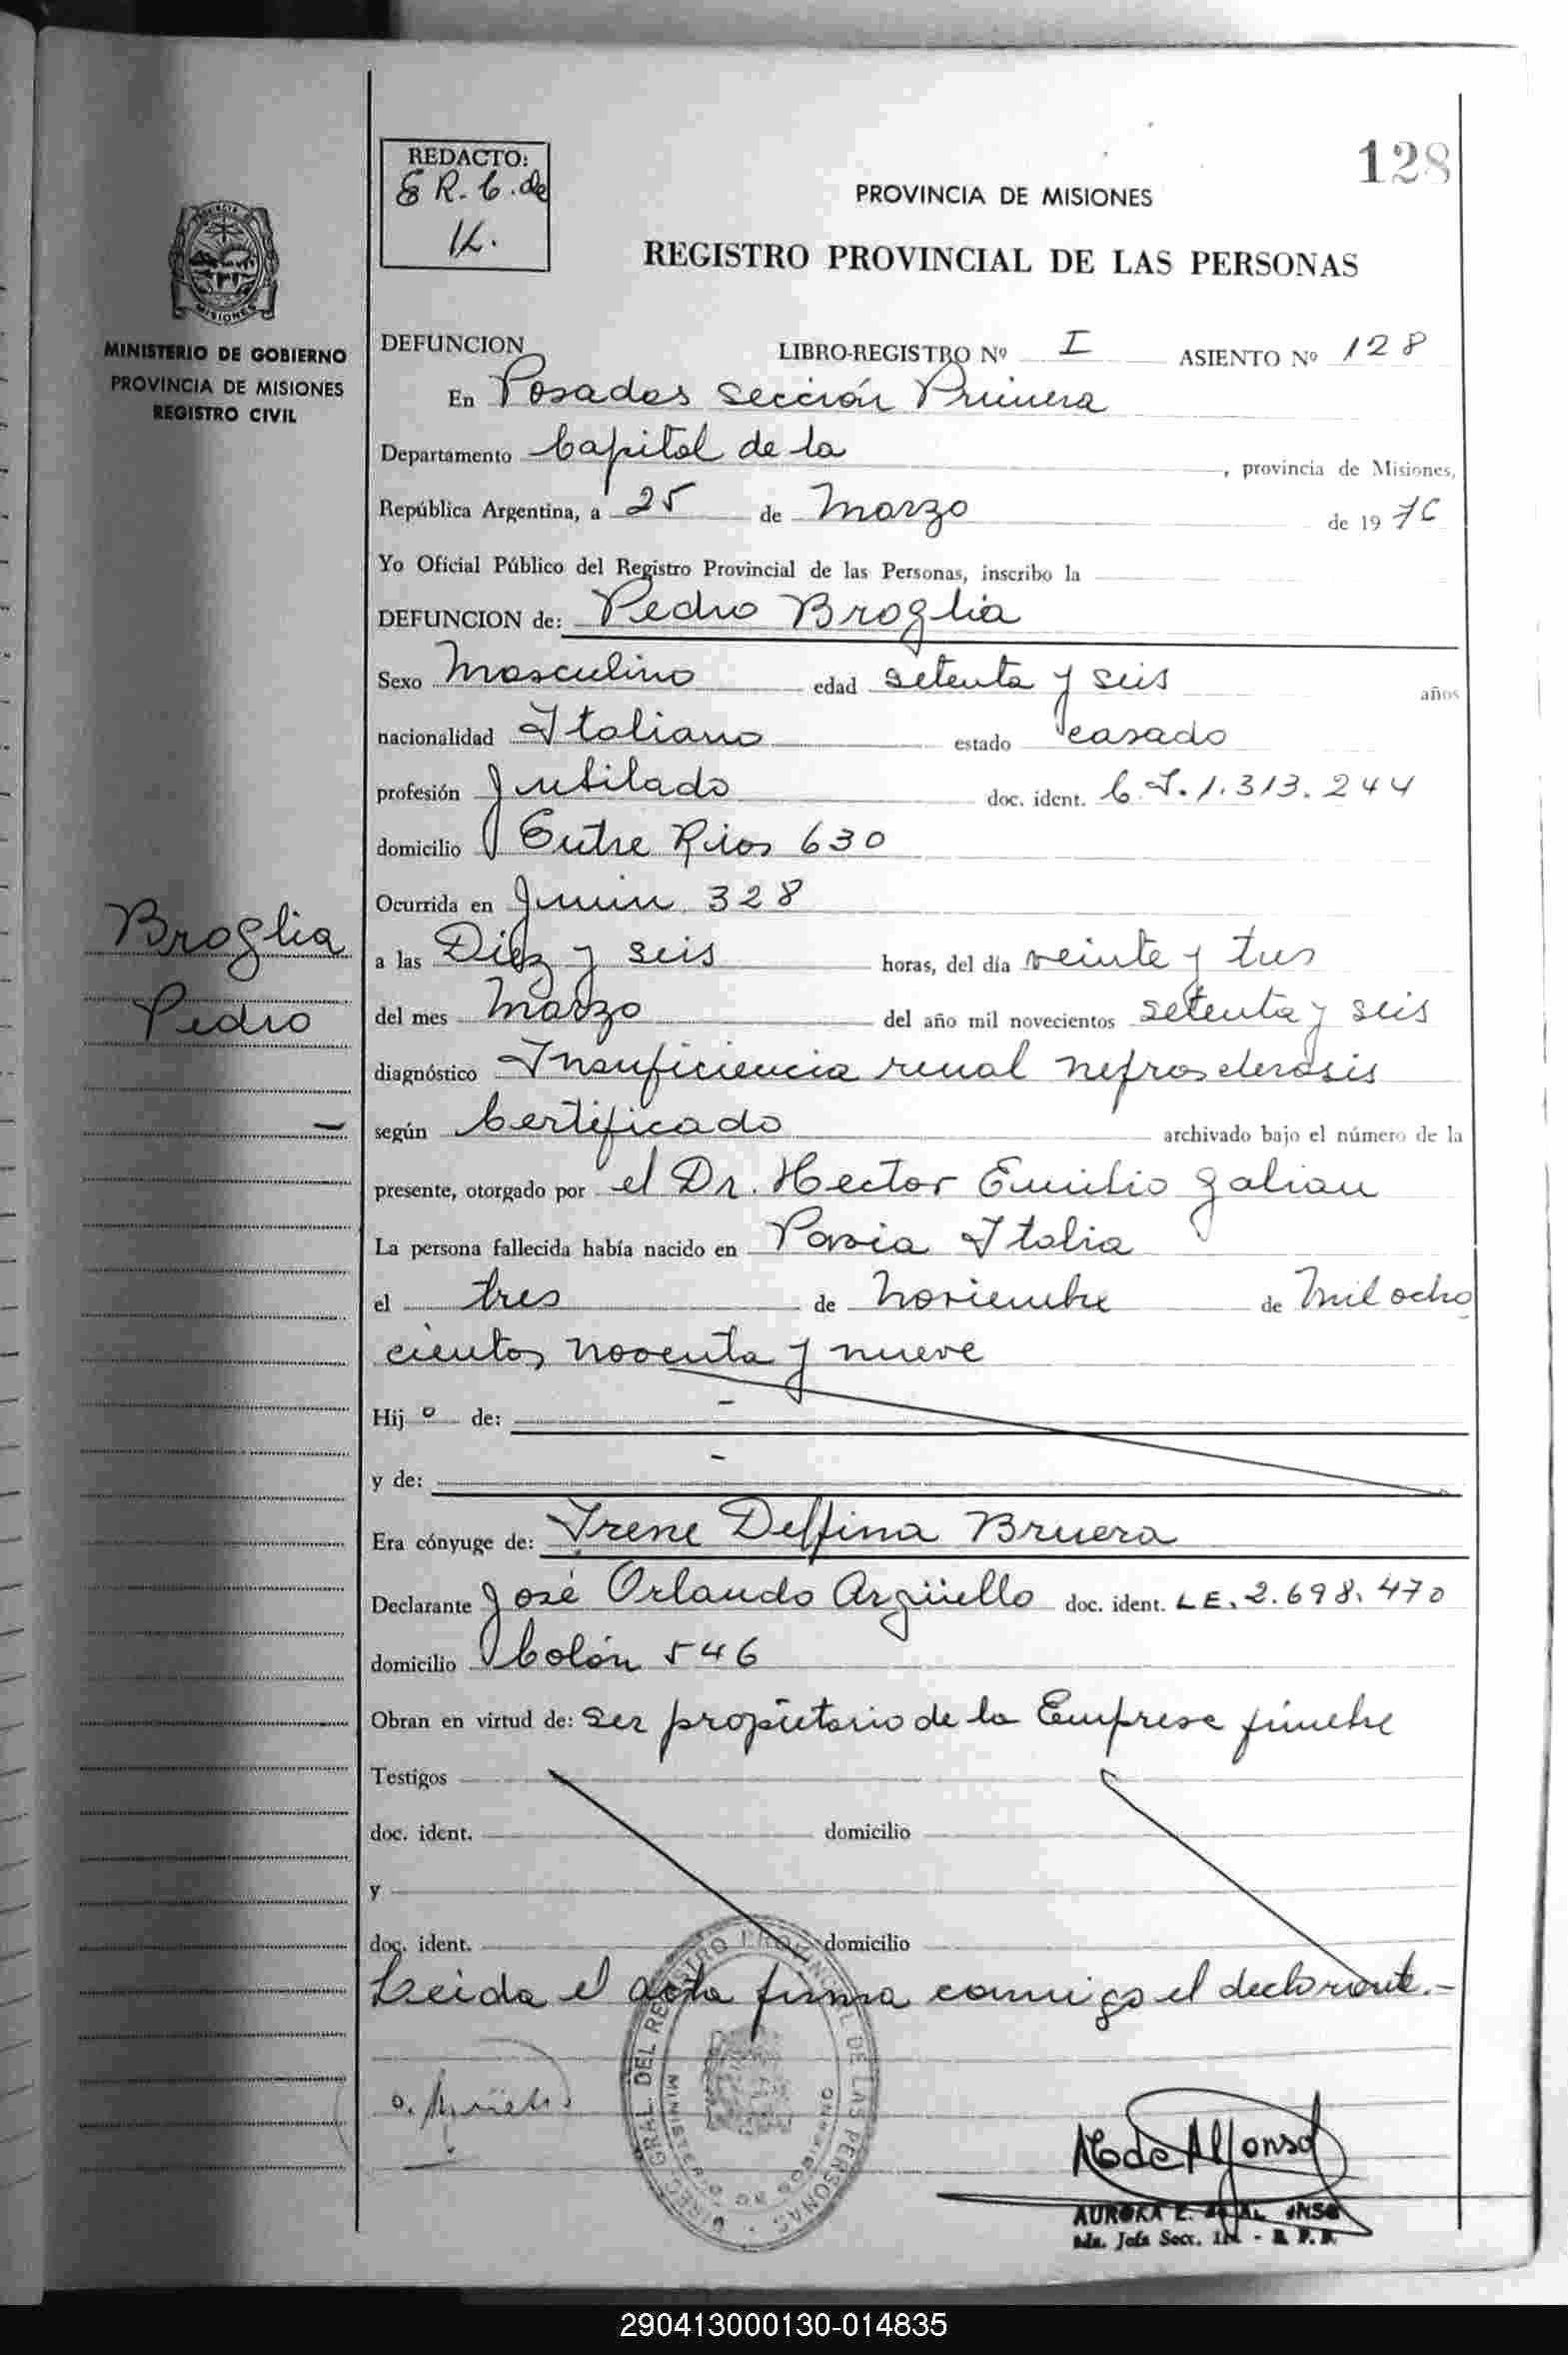 128
REDACTO:
E R. C. de
K.
PROVINCIA DE MISIONES
REGISTRO PROVINCIAL DE LAS PERSONAS
MISIONES
MINISTERIO DE GOBIERNO
PROVINCIA DE MISIONES
REGISTRO CIVIL
DEFUNCION LIBRO-REGISTRO Nº I ASIENTO Nº 128
En Posadas sección Primera
Departamento Capital de la , provincia de Misiones,
República Argentina, a 25 de Marzo de 19 76
Yo Oficial Público del Registro Provincial de las Personas, inscribo la
DEFUNCION de: Pedro Broglia
Sexo Masculino edad setenta y seis años
nacionalidad Italiano estado casado
profesión Jubilado doc. ident. C.I. 1.313.244
domicilio Entre Rios 630
Ocurrida en Junin 328
Broglia
Pedro
a las Diez y seis horas, del día veinte y tres
del mes Marzo del año mil novecientos setenta y seis
diagnóstico Insuficiencia renal nefrosclerosis
según Certificado archivado bajo el número de la
presente, otorgado por el Dr. Hector Emilio Galian
La persona fallecida había nacido en Pavia Italia
el tres de Noviembre de Mil ocho
cientos noventa y nueve
Hij o de: -
y de: -
Era cónyuge de: Irene Delfina Bruera
Declarante José Orlando Argüello doc. ident. LE. 2.698.470
domicilio Colón 546
Obran en virtud de: ser propietario de la Empresa fúnebre
Testigos
doc. ident. domicilio
y
doc. ident. domicilio
Leida el acta firma conmigo el declarante.-
DIREC. GRAL. DEL REGISTRO PROVINCIAL DE LAS PERSONAS
MINISTERIO DE GOBIERNO
O. Argüello
A E de Alfonso
AURORA E. de ALFONSO
Jefa Secc. - R. P. P.
290413000130-014835